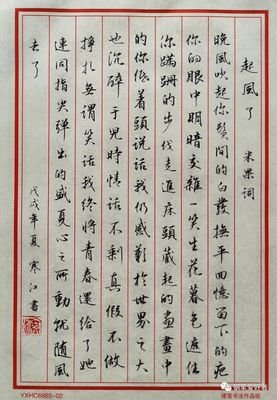 起風了 米果词
晚風吹起你鬢間的白發撫平回憶留下的疤
你的眼中明暗交雜一笑生花暮色遮住
你蹣跚的步伐走進床頭藏起的畫畫中
的你低着頭說話我仍感歎於世界之大
也沉醉于兒時情話不剩真假不做
掙扎無謂笑話我終將青春還給了她
連同指尖弹出的盛夏心之所動就隨風
去了 戊戌年夏 寒江書
YXHC6665-02
硬笔书法作品纸